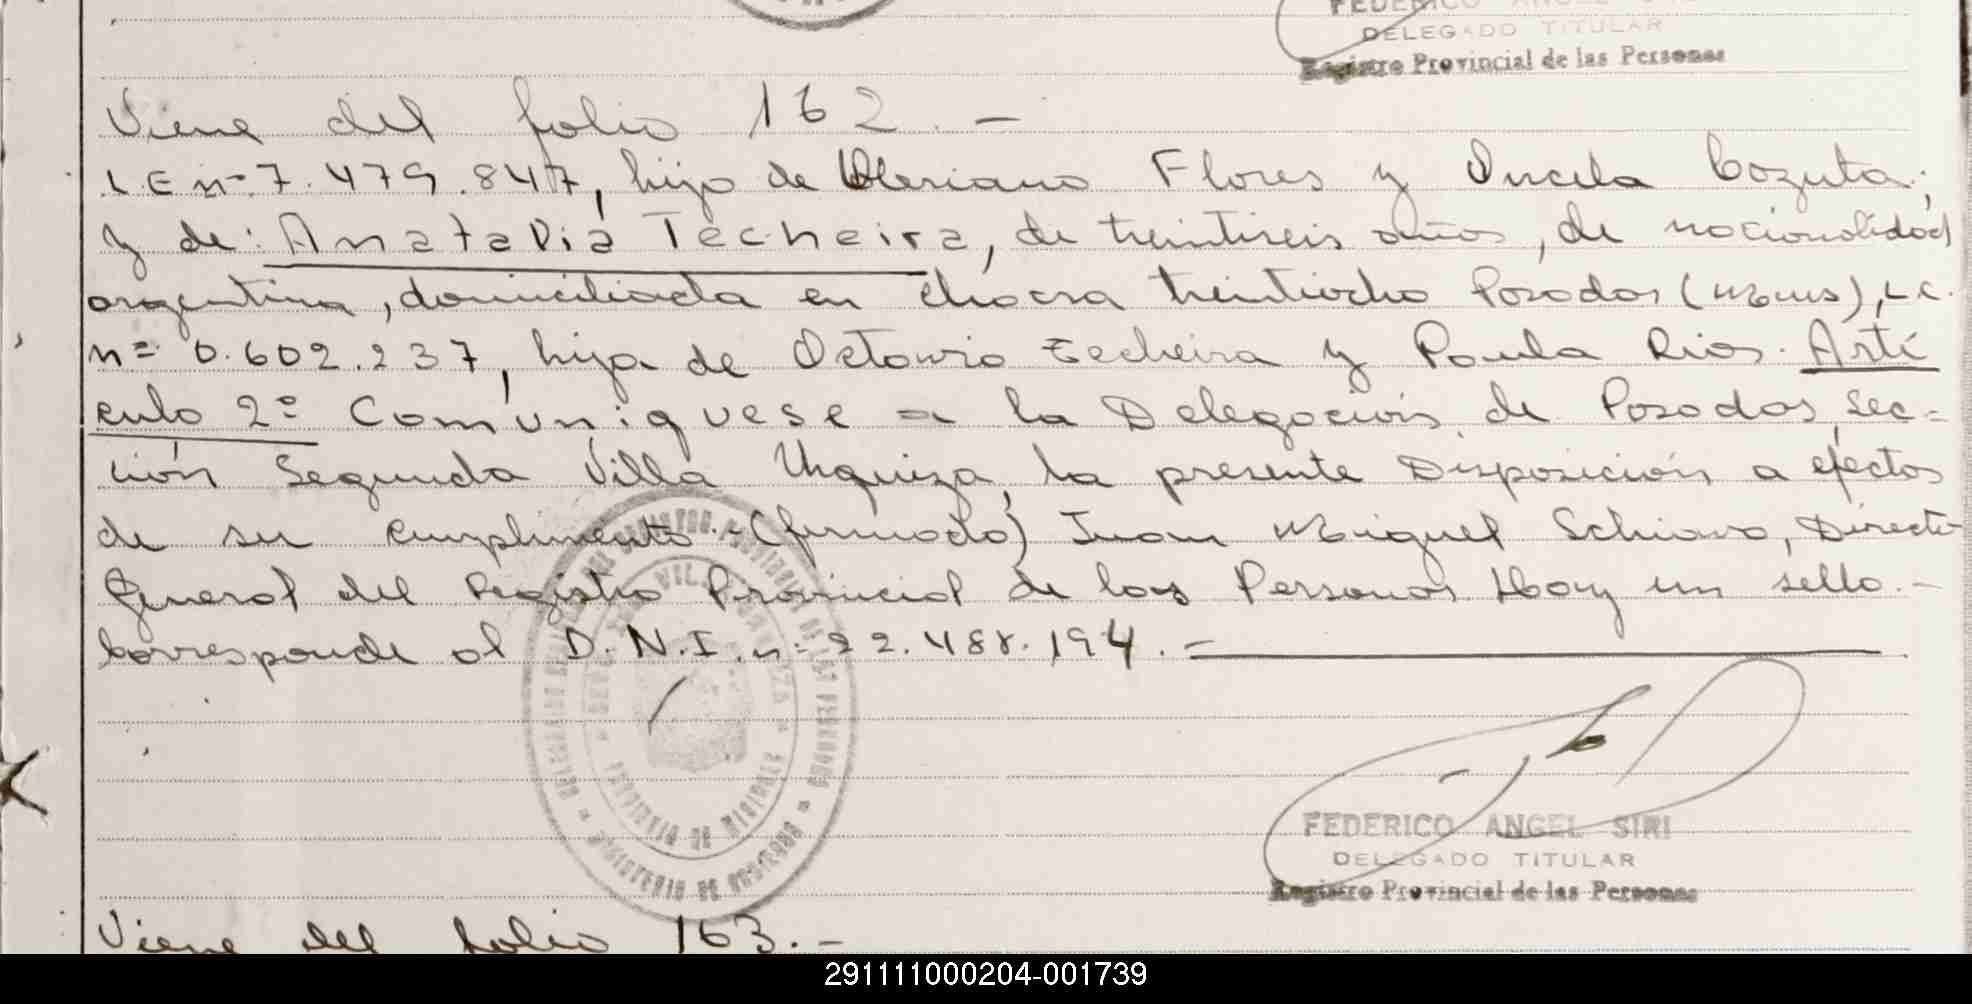 FEDERICO ANGEL SIRI
DELEGADO TITULAR
Registro Provincial de las Personas
Viene del folio 162.-
L E nº 7.479.847, hijo de Flores y Cozuta;
y de: Anatalia Techeira, de treintiseis años, de nacionalidad
argentina, domiciliada en chacra treintiocho Posadas (Mnes), L.C.
nº 0.602.237, hija de Octavio Techeira y Paula Rios. Artí
culo 2º Comuniquese a la Delegación de Posadas, Sec-
ción Segunda Villa Urquiza, la presente Disposición a efectos
de su cumplimento.-(firmado) Juan Miguel Schiavo, Director
General del Registro Provincial de las Personas Hay un sello.-
Corresponde al D.N.I. nº 22.488.194.-
PROVINCIA DE MISIONES
MINISTERIO DE GOBIERNO
FEDERICO ANGEL SIRI
DELEGADO TITULAR
Registro Provincial de las Personas
Viene del folio 163.-
291111000204-001739